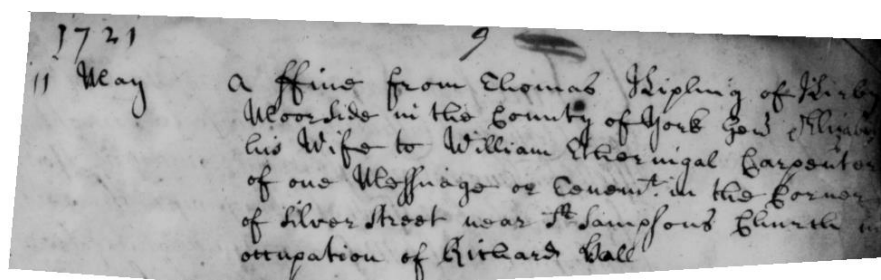 1721 9
11 May a ffine from Thomas Kipling of Kirby
Moorside in the County of York Gent & Elizabeth
his Wife to William Etherington Carpenter
of one Messuage or Tenemt. in the Corner
of Silver Street near St. Sampsons Church in
occupation of Richard Hall